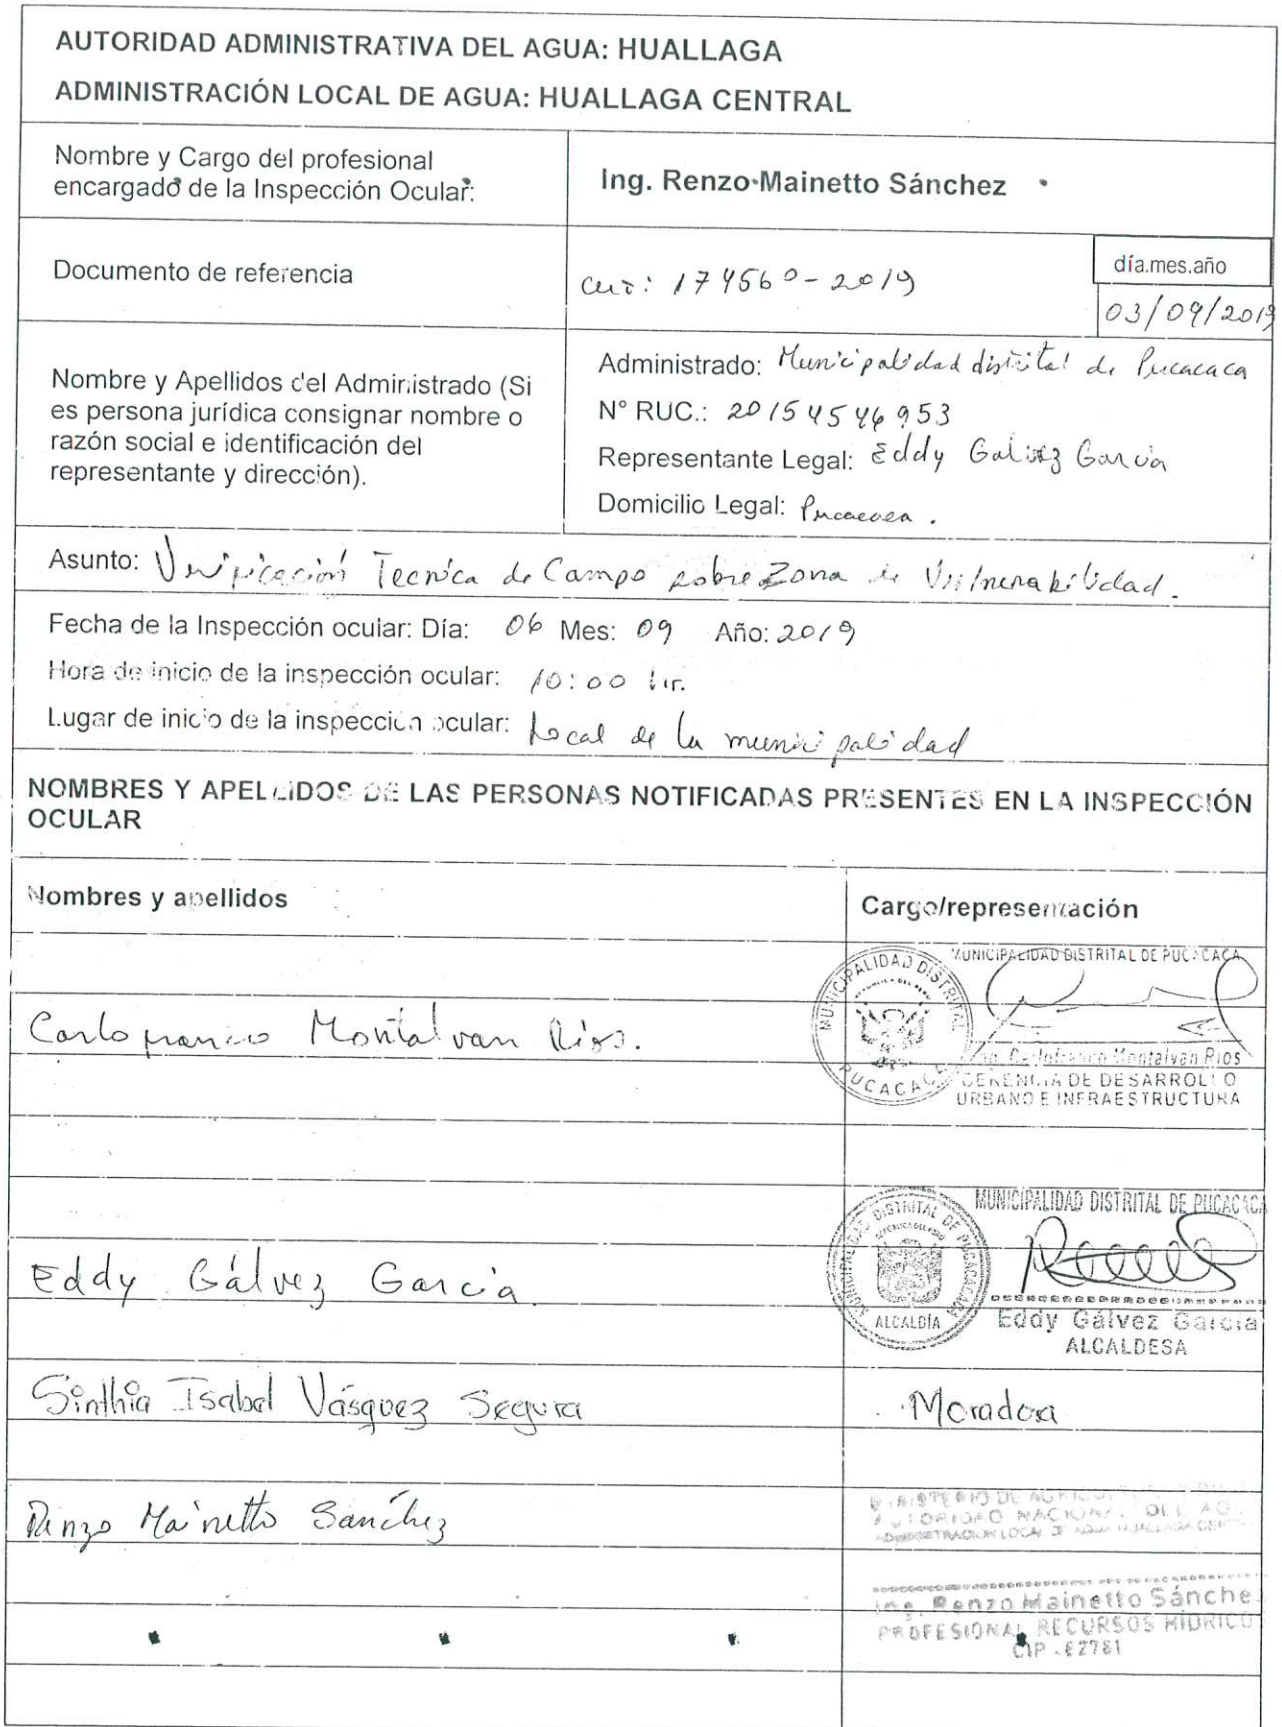 AUTORIDAD ADMINISTRATIVA DEL AGUA: HUALLAGA
ADMINISTRACIÓN LOCAL DE AGUA: HUALLAGA CENTRAL
Nombre y Cargo del profesional
encargado de la Inspección Ocular:
Ing. Renzo Mainetto Sánchez
Documento de referencia
CUT: 174560-2019
día.mes.año
03/09/2019
Nombre y Apellidos del Administrado (Si
es persona jurídica consignar nombre o
razón social e identificación del
representante y dirección).
Administrado: Municipalidad distrital de Pucacaca
N° RUC.: 20154546953
Representante Legal: Eddy Galvez Garcia
Domicilio Legal: Pucacaca.
Asunto: Verificación Tecnica de Campo sobre Zona de Vulnerabilidad.
Fecha de la Inspección ocular: Día: 06 Mes: 09 Año: 2019
Hora de inicio de la inspección ocular: 10:00 hr.
Lugar de inicio de la inspección ocular: Local de la municipalidad
NOMBRES Y APELLIDOS DE LAS PERSONAS NOTIFICADAS PRESENTES EN LA INSPECCIÓN
OCULAR
Nombres y apellidos
Cargo/representación
Carlofranco Montalvan Rios.
MUNICIPALIDAD DISTRITAL
PUCACACA
MUNICIPALIDAD DISTRITAL DE PUCACACA
Ing. Carlofranco Montalván Rios
GERENCIA DE DESARROLLO
URBANO E INFRAESTRUCTURA
Eddy Gálvez Garcia
MUNICIPALIDAD DISTRITAL DE PUCACACA
ALCALDÍA
MUNICIPALIDAD DISTRITAL DE PUCACACA
Eddy Gálvez García
ALCALDESA
Sinthia Isabel Vásquez Segura
Moradora
Renzo Mainetto Sanchez
MINISTERIO DE
AUTORIDAD NACIONAL DEL
ADMINISTRACION LOCAL DE AGUA HUALLAGA
Ing. Renzo Mainetto Sánche
PROFESIONAL RECURSOS HÍDRICO
CIP - 62781